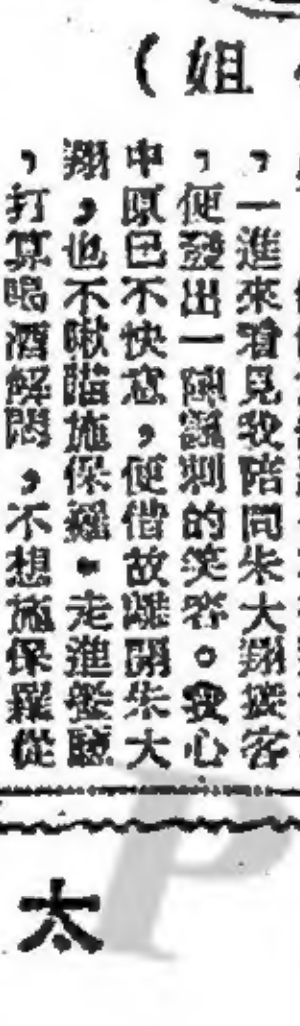 （姐
，一進來看見我陪同朱大翔接客
，便發出一陣諷刺的笑容。我心
中原已不快意，便借故離開朱大
翔，也不瞅睬施保羅。走進餐廳
，打算喝酒解悶，不想施保羅從
太